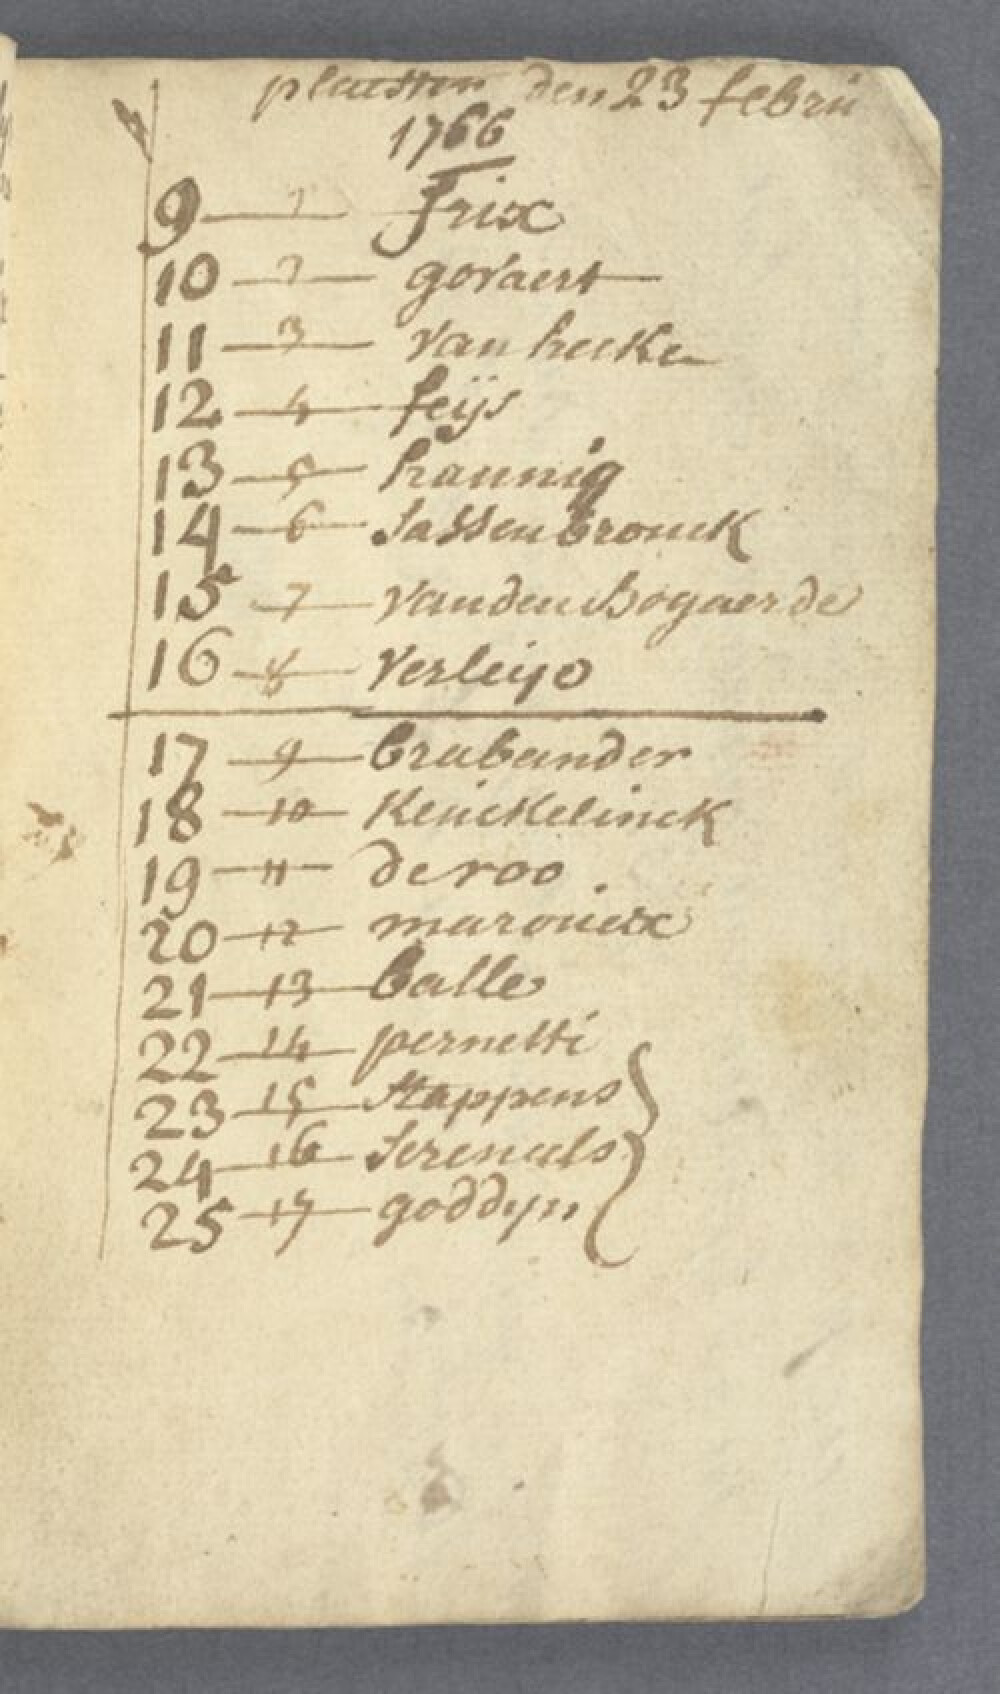 plaetsen den 23 febru
1766
9 — 1 — Frix
10 — 2 — govaert
11 — 3 — Van hecke
12 — 4 — feijs
13 — 5 — hannig
14 — 6 — Sassenbrouck
15 — 7 — Vanden Bogaerde
16 — 8 — Verleijo
17 — 9 — brabander
18 — 10 — Keuckelinck
19 — 11 — de roo
20 — 12 — maroucx
21 — 13 — balle
22 — 14 — pernetti
23 — 15 — Stappens
24 — 16 — Serencels
25 — 17 — goddyn